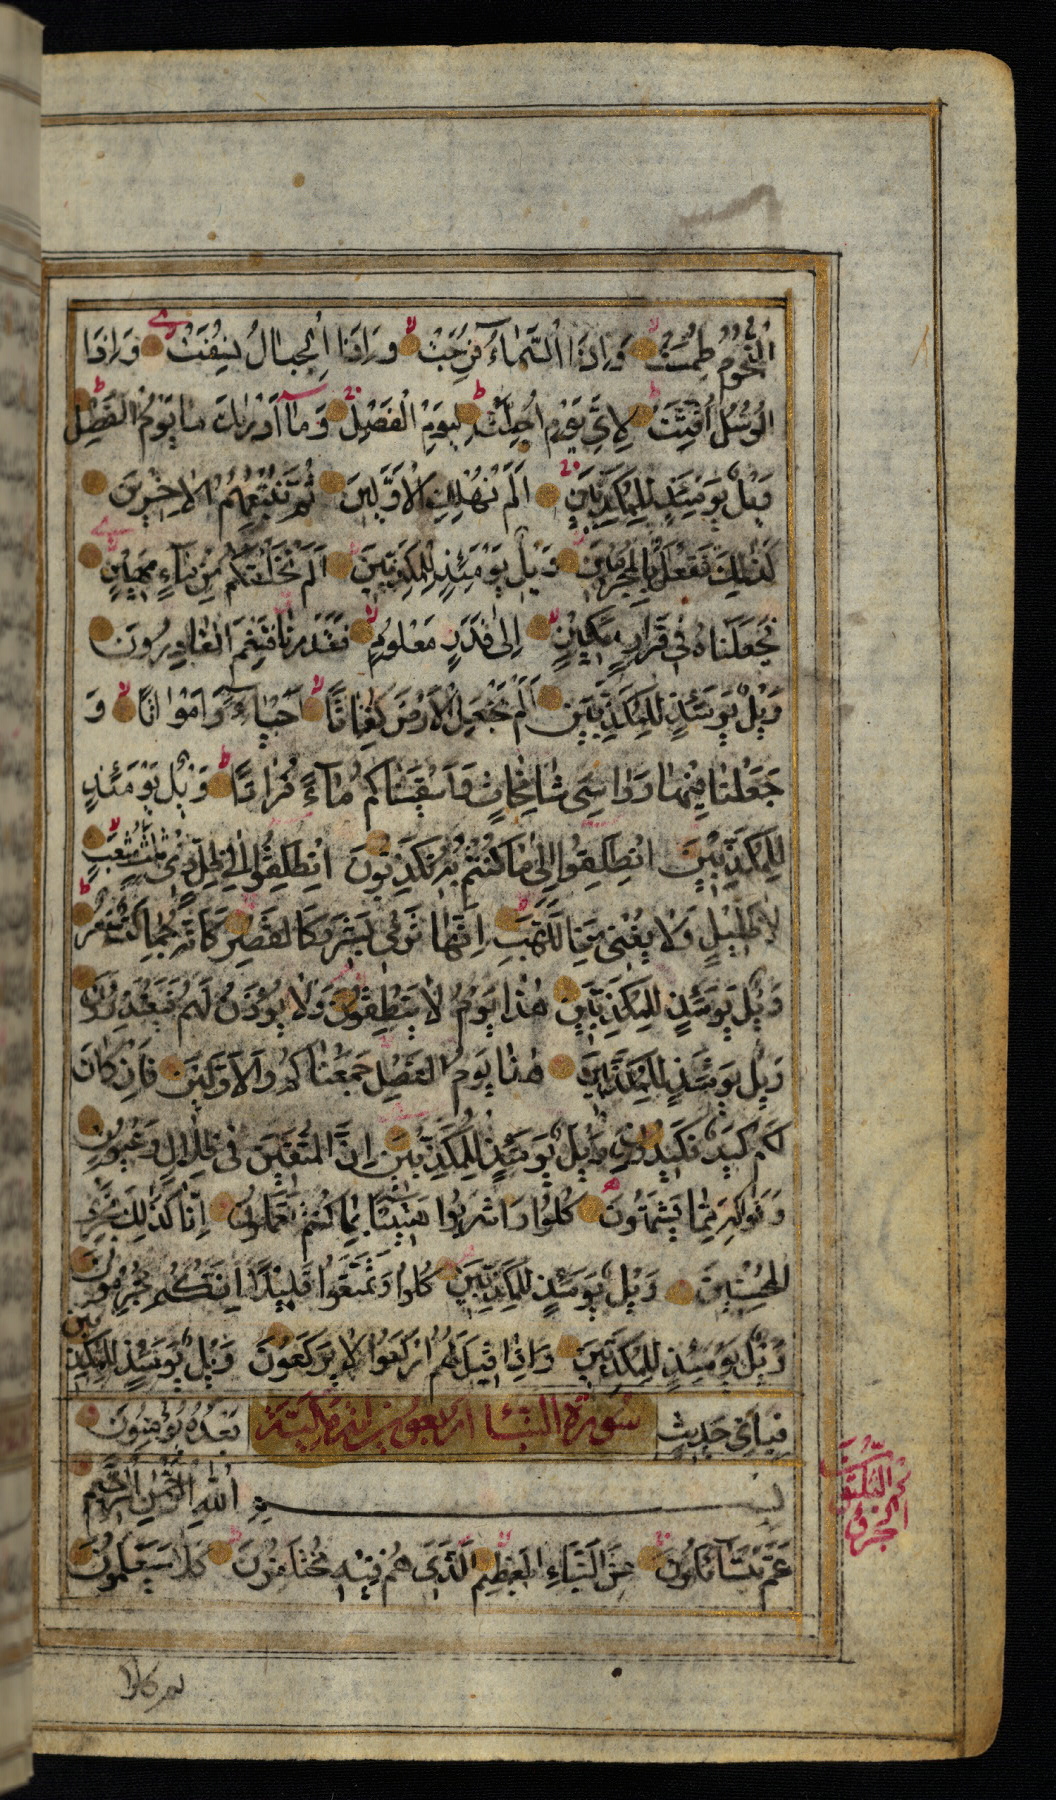 النُّجُومُ طُمِسَتْ وَاِذَا السَّمَاءُ فُرِجَتْ وَاِذَا الْجِبَالُ نُسِفَتْ وَاِذَا
الرُّسُلُ اُقِّتَتْ لِاَىِّ يَوْمٍ اُجِّلَتْ لِيَوْمِ الْفَصْلِ وَمَا اَدْرٰىكَ مَا يَوْمُ الْفَصْلِ
وَيْلٌ يَوْمَئِذٍ لِلْمُكَذِّبِينَ اَلَمْ نُهْلِكِ الْاَوَّلِينَ ثُمَّ نُتْبِعُهُمُ الْاٰخِرِينَ
كَذٰلِكَ نَفْعَلُ بِالْمُجْرِمِينَ وَيْلٌ يَوْمَئِذٍ لِلْمُكَذِّبِينَ اَلَمْ نَخْلُقْكُمْ مِنْ مَاءٍ مَهِينٍ
فَجَعَلْنَاهُ فِى قَرَارٍ مَكِينٍ اِلٰى قَدَرٍ مَعْلُومٍ فَقَدَرْنَا فَنِعْمَ الْقَادِرُونَ
وَيْلٌ يَوْمَئِذٍ لِلْمُكَذِّبِينَ اَلَمْ نَجْعَلِ الْاَرْضَ كِفَاتًا اَحْيَاءً وَاَمْوَاتًا وَ
جَعَلْنَا فِيهَا رَوَاسِىَ شَامِخَاتٍ وَاَسْقَيْنَاكُمْ مَاءً فُرَاتًا وَيْلٌ يَوْمَئِذٍ
لِلْمُكَذِّبِينَ انْطَلِقُوا اِلٰى مَا كُنْتُمْ بِهِ تُكَذِّبُونَ انْطَلِقُوا اِلٰى ظِلٍّ ذِى ثَلٰثِ شُعَبٍ
لَا ظَلِيلٍ وَلَا يُغْنِى مِنَ اللَّهَبِ اِنَّهَا تَرْمِى بِشَرَرٍ كَالْقَصْرِ كَاَنَّهُ جِمَالَتٌ صُفْرٌ
وَيْلٌ يَوْمَئِذٍ لِلْمُكَذِّبِينَ هٰذَا يَوْمُ لَا يَنْطِقُونَ وَلَا يُؤْذَنُ لَهُمْ فَيَعْتَذِرُونَ
وَيْلٌ يَوْمَئِذٍ لِلْمُكَذِّبِينَ هٰذَا يَوْمُ الْفَصْلِ جَمَعْنَاكُمْ وَالْاَوَّلِينَ فَاِنْ كَانَ
لَكُمْ كَيْدٌ فَكِيدُونِ وَيْلٌ يَوْمَئِذٍ لِلْمُكَذِّبِينَ اِنَّ الْمُتَّقِينَ فِى ظِلَالٍ وَعُيُونٍ
وَفَوَاكِهَ مِمَّا يَشْتَهُونَ كُلُوا وَاشْرَبُوا هَنِيئًا بِمَا كُنْتُمْ تَعْمَلُونَ اِنَّا كَذٰلِكَ نَجْزِى
الْمُحْسِنِينَ وَيْلٌ يَوْمَئِذٍ لِلْمُكَذِّبِينَ كُلُوا وَتَمَتَّعُوا قَلِيلًا اِنَّكُمْ مُجْرِمُونَ
وَيْلٌ يَوْمَئِذٍ لِلْمُكَذِّبِينَ وَاِذَا قِيلَ لَهُمُ ارْكَعُوا لَا يَرْكَعُونَ وَيْلٌ يَوْمَئِذٍ لِلْمُكَذِّبِينَ
فَبِاَىِّ حَدِيثٍ سورة النبأ اربعون اية مكية بَعْدَهُ يُؤْمِنُونَ
بِسْمِ اللهِ الرَّحْمٰنِ الرَّحِيمِ
عَمَّ يَتَسَاءَلُونَ عَنِ النَّبَاِ الْعَظِيمِ الَّذِى هُمْ فِيهِ مُخْتَلِفُونَ كَلَّا سَيَعْلَمُونَ
الجزء
ثم كلا